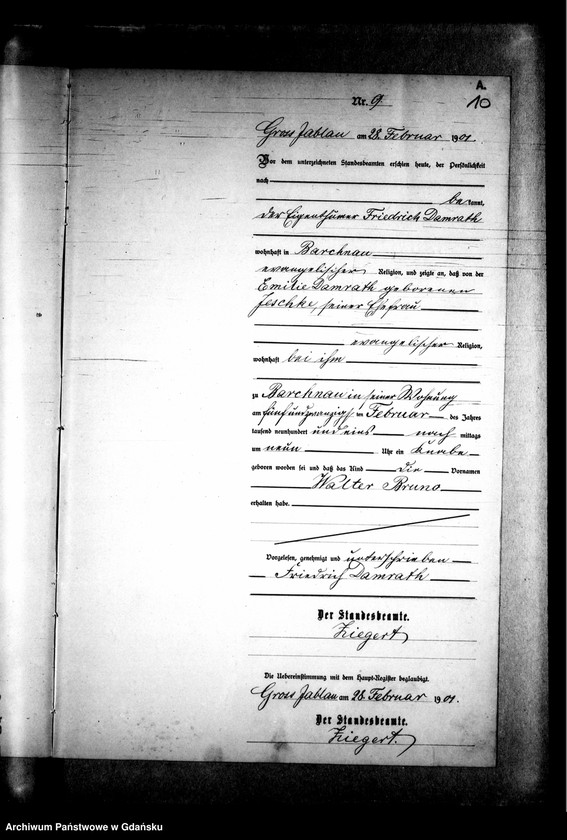 A.
10
Nr. 9
Gross Jablau am 28. Februar 1901.
Vor dem unterzeichneten Standesbeamten erschien heute, der Persönlichkeit
nach
bekannt,
der Eigenthümer Friedrich Damrath
wohnhaft in Barchnau
evangelischer Religion, und zeigte an, daß von der
Emilie Damrath geborenen
Jeschke, seiner Ehefrau
evangelischer Religion,
wohnhaft bei ihm
zu Barchnau in seiner Wohnung
am fünfundzwanzigsten Februar des Jahres
tausend neunhundert und eins nach mittags
um neun Uhr ein Knabe
geboren worden sei und daß das Kind die Vornamen
Walter Bruno
erhalten habe.
Vorgelesen, genehmigt und unterschrieben
Friedrich Damrath
Der Standesbeamte.
Ziegert
Die Uebereinstimmung mit dem Haupt-Register beglaubigt.
Gross Jablau am 28. Februar 1901.
Der Standesbeamte.
Ziegert.
Archiwum Państwowe w Gdańsku